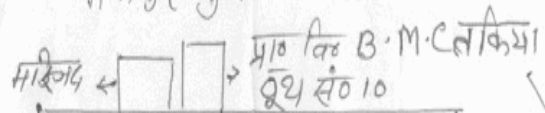 मस्जिद
प्रा० वि० B.M.C तकिया
बूथ सं० 10